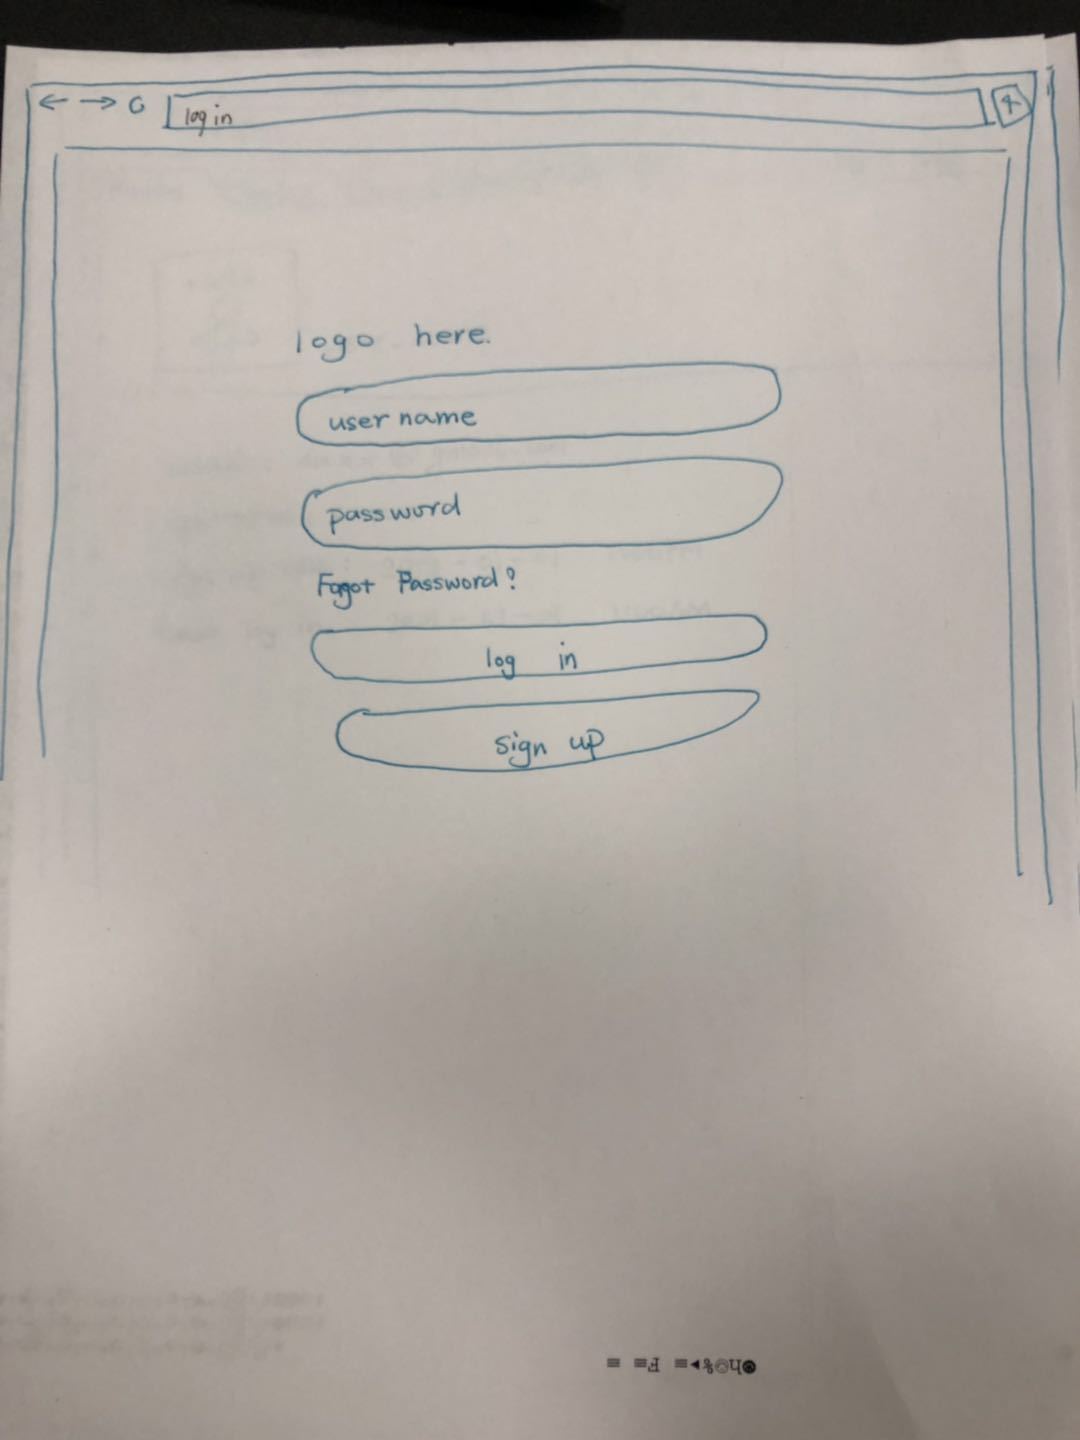 log in
logo here.
user name
password
Fogot Password?
log in
sign up